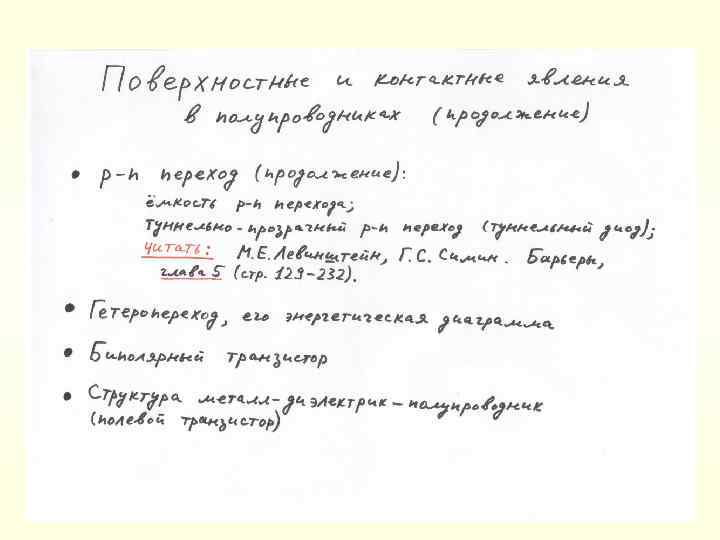 Поверхностные и контактные явления
в полупроводниках (продолжение)
• p-n переход (продолжение):
ёмкость p-n перехода;
туннельно-прозрачный p-n переход (туннельный диод);
Читать: М.Е. Левинштейн, Г.С. Симин. Барьеры,
глава 5 (стр. 129-232).
• Гетеропереход, его энергетическая диаграмма
• Биполярный транзистор
• Структура металл-диэлектрик-полупроводник
(полевой транзистор)